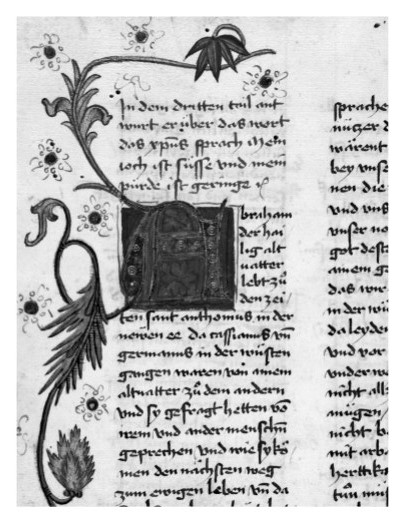 In dem dritten tail ant
wurt er über das wort
das xp̄us sprach Mein
ioch ist süsse vnd mein
pürde ist geringe
Abraham
der hai
lig alt
uatter
lebt zů
den zei
ten sant anthonius in der
newen ee da cassianus vn̄
germanus in der wüsten
gangen waren von ainem
altuatter zů dem andern
vnd sy gefragt hetten vō
irem vnd ander menschn̄
geprechen vnd wie sy kö
men den nächsten weg
zum ewigen leben vn̄ da
sprache
nüczer
wärent
bey vnse
nen die
vnd vns
vnser no
got des
ainem g
das wir
in der wü
da leyden
vnd vor
vnder w
nicht all
mügen
nicht b
mit arb
hertika
tůn mü